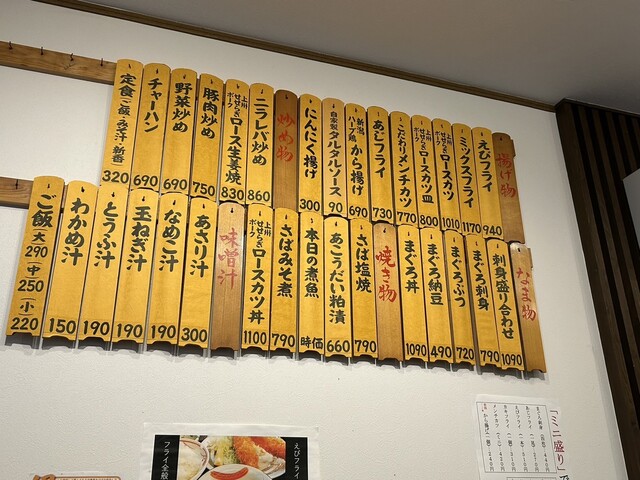 揚げ物
えびフライ 940
ミックスフライ 1170
上州せせらぎポーク ロースカツ 1010
上州せせらぎポーク ロースカツ皿 800
こだわりメンチカツ 770
あじフライ 730
新潟ハーブ鶏 から揚げ 690
自家製タルタルソース 90
にんにく揚げ 300
炒め物
ニラレバ炒め 860
上州せせらぎポーク ロース生姜焼 830
豚肉炒め 750
野菜炒め 690
チャーハン 690
定食(ご飯・みそ汁・新香) 320
なま物
刺身盛り合わせ 1090
まぐろ刺身 790
まぐろぶつ 720
まぐろ納豆 490
まぐろ丼 1090
焼き物
さば塩焼 790
あこうだい粕漬 660
本日の煮魚 時価
さばみそ煮 790
上州せせらぎポーク ロースカツ丼 1100
味噌汁
あさり汁 300
なめこ汁 190
玉ねぎ汁 190
とうふ汁 190
わかめ汁 150
ご飯 大290 (中)250 (小)220
「ミニ盛り」
えびフライ
フライ全般